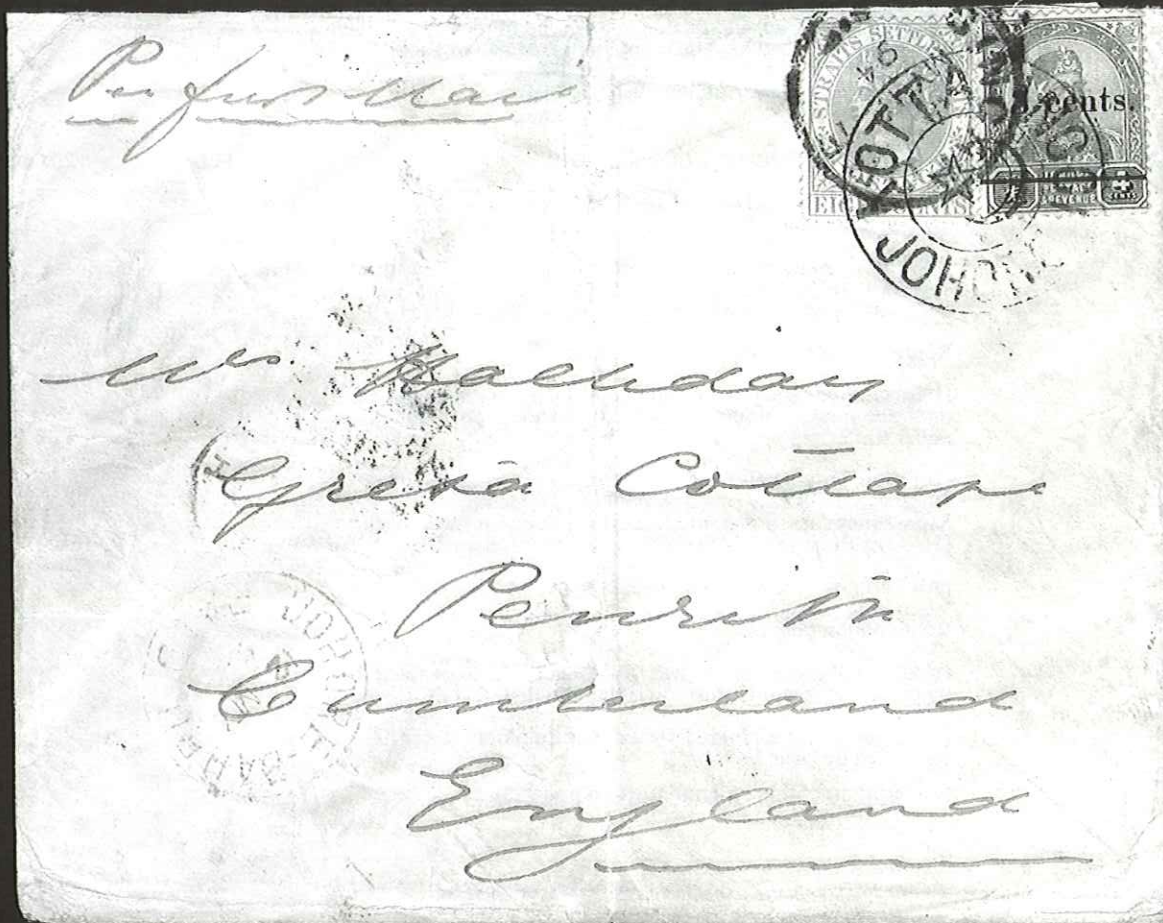 Per first Mail
STRAITS SETTLE
EIGHT CENTS
cents.
& REVENUE
KOTTA
JOHORE
Mrs Halliday
Greta Cottage
Penrith
Cumberland
England
JOHORE